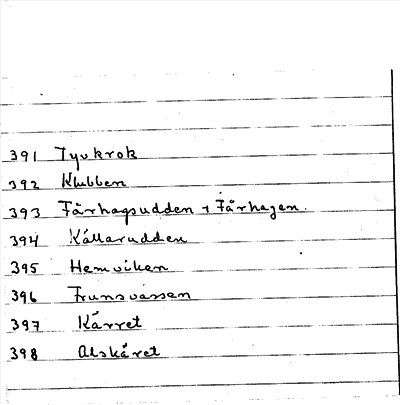 391 Tyvkrok
392 Klubben
393 Fårhagsudden + Fårhagen.
394 Källarudden
395 Hemviken
396 Frunsvassen
397 Kärret
398 Alskäret